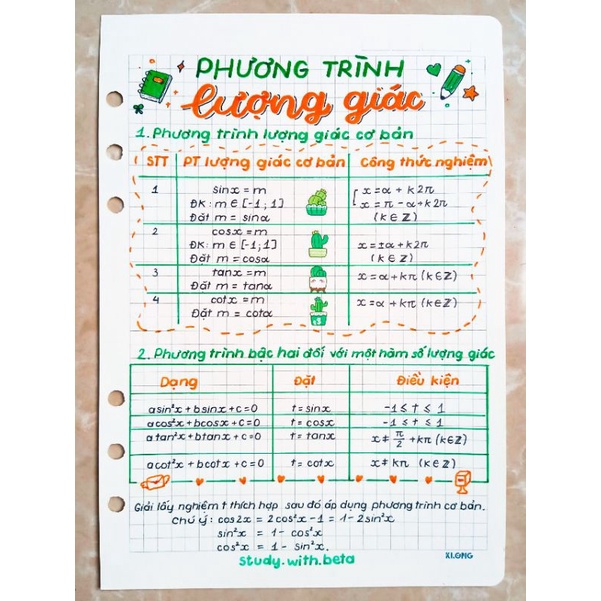 PHƯƠNG TRÌNH
lượng giác
1. Phương trình lượng giác cơ bản
STT PT lượng giác cơ bản Công thức nghiệm
1 sinx = m
ĐK: m ∈ [-1; 1]
Đặt m = sinα
x = α + k2π
x = π - α + k2π
(k ∈ ℤ)
2 cosx = m
ĐK: m ∈ [-1; 1]
Đặt m = cosα
x = ±α + k2π
(k ∈ ℤ)
3 tanx = m
Đặt m = tanα
x = α + kπ (k ∈ ℤ)
4 cotx = m
Đặt m = cotα
x = α + kπ (k ∈ ℤ)
2. Phương trình bậc hai đối với một hàm số lượng giác
Dạng Đặt Điều kiện
asin²x + bsinx + c = 0 t = sinx -1 ≤ t ≤ 1
acos²x + bcosx + c = 0 t = cosx -1 ≤ t ≤ 1
atan²x + btanx + c = 0 t = tanx x ≠ π/2 + kπ (k ∈ ℤ)
acot²x + bcotx + c = 0 t = cotx x ≠ kπ (k ∈ ℤ)
Giải lấy nghiệm t thích hợp sau đó áp dụng phương trình cơ bản.
Chú ý: cos2x = 2cos²x - 1 = 1 - 2sin²x
sin²x = 1 - cos²x
cos²x = 1 - sin²x.
study.with.beta
XI.ONG